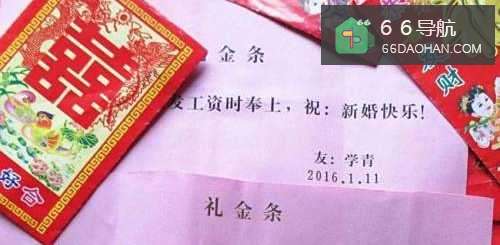 66导航
66DAOHAN.COM
囍
好合
发财
礼金条
发工资时奉上，祝：新婚快乐！
友：学青
2016.1.11
礼金条